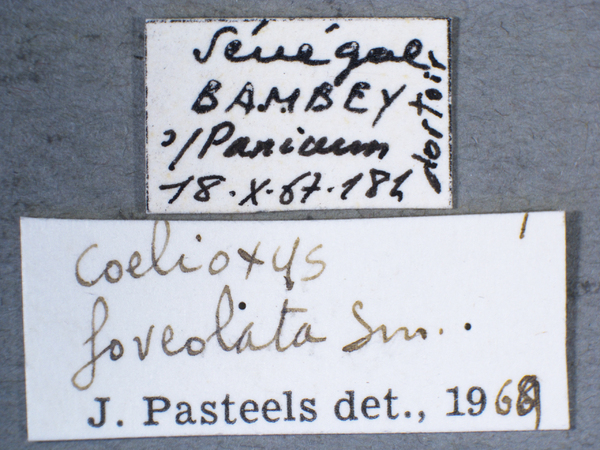 Sénégal
BAMBEY
s/Panicum
18.X.67.18h
dortoir
Coelioxys
foveolata Sm..
J. Pasteels det., 1968